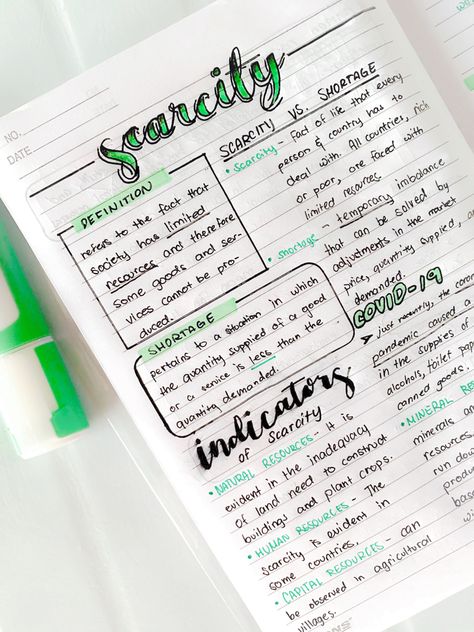 NO.
DATE
scarcity
DEFINITION
refers to the fact that
society has limited
resources and therefore
some goods and ser-
vices cannot be pro-
duced.
SHORTAGE
pertains to a situation in which
the quantity supplied of a good
or a service is less than the
quantity demanded.
indicators
of scarcity
• NATURAL RESOURCES - It is
evident in the inadequacy
of land need to construct
buildings and plant crops.
• HUMAN RESOURCES - The
scarcity is evident in
some countries,
• CAPITAL RESOURCES - can
be observed in agricultural
villages.
SCARCITY VS. SHORTAGE
• scarcity - Fact of life that every
person & country has to
deal with. All countries, rich
or poor, are faced with
limited resources
• shortage - temporary imbalance
that can be solved by
adjustments in the market
price, quantity supplied,
demanded.
COVID-19
➤ just recently, the
pandemic caused
in the supplies
alcohols, toilet
canned goods.
• MINERAL
minerals
resources,
run down